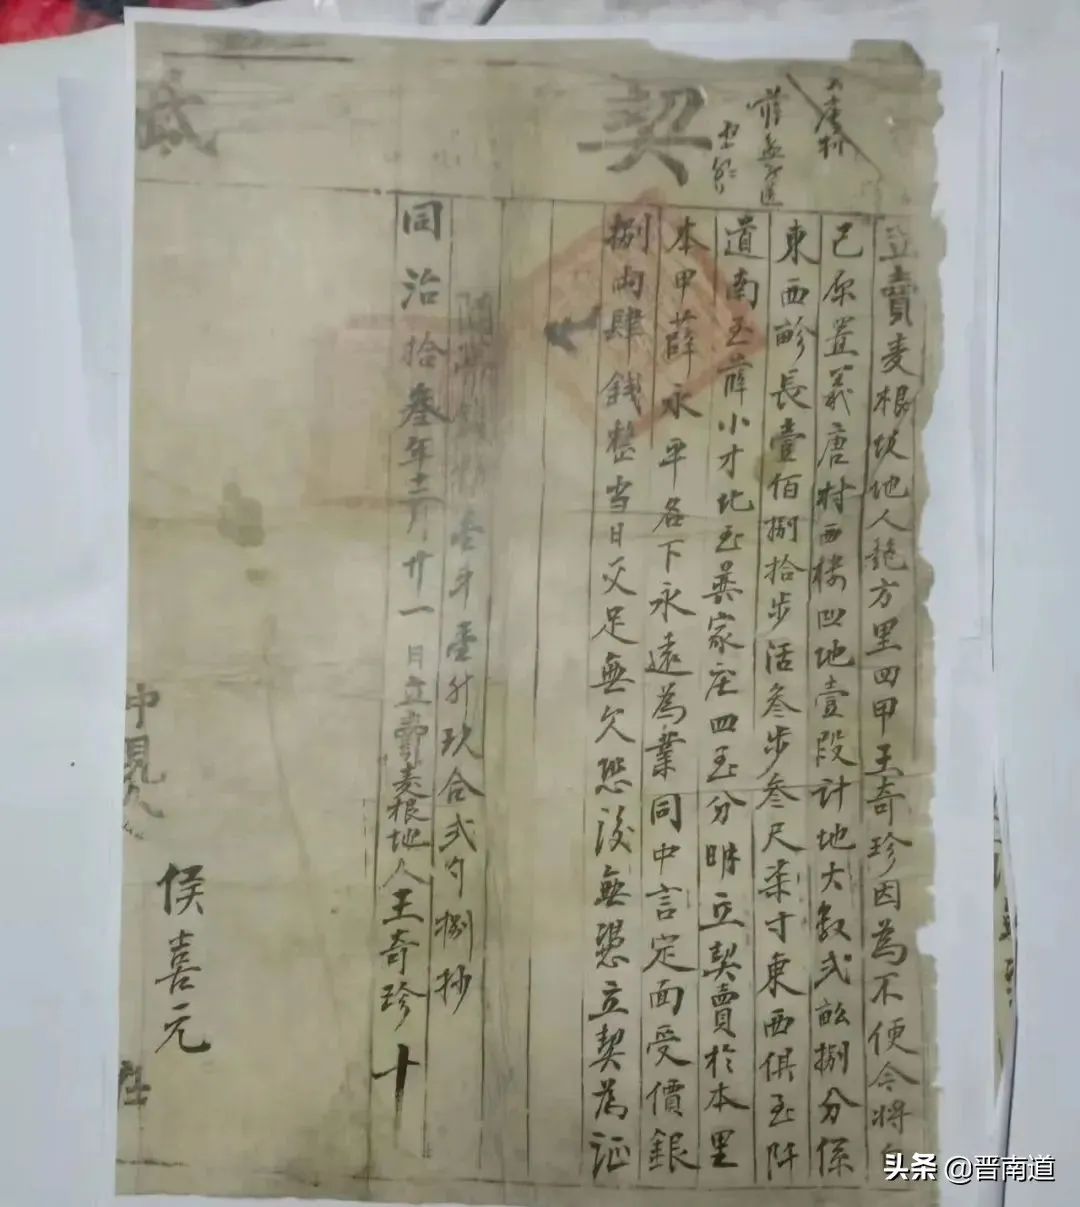 契
立賣麦根坟地人艳方里四甲王奇珍因為不便今將自
己原置義唐村西楼凹地壹段計地大数弍畝捌分係
東西畛長壹佰捌拾步活叁步叁尺柒寸東西俱至阡
道南至薛小才北至吳家庄四至分明立契賣於本里
本甲薛永平名下永遠為業同中言定面受價銀
捌兩肆錢整当日交足無欠恐後無憑立契為证
壹升玖合弍勺捌抄
同治拾叁年十二月廿一日立賣麦根地人王奇珍十
中見人
侯喜元
头条 @晋南道